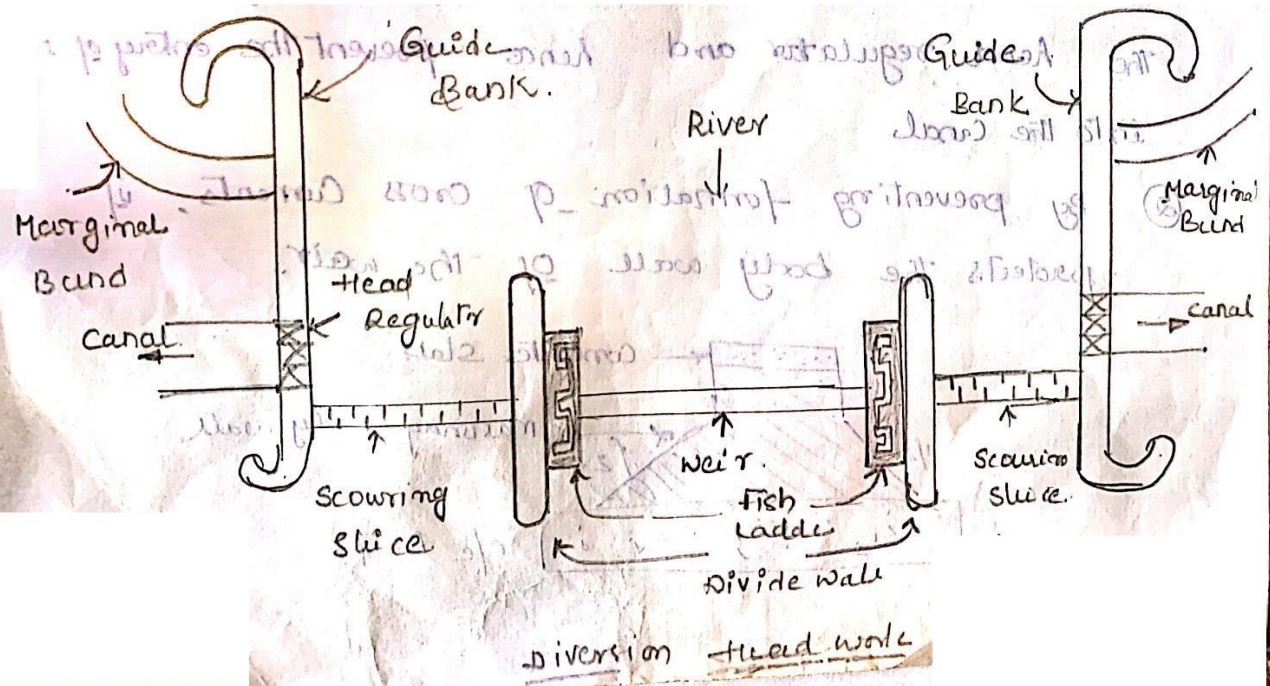 Guide
Bank.
River
Guide
Bank
Marginal
Bund
Marginal
Bund
Head
Regulator
Canal
Canal
Weir.
Scouring
Sluice
Fish
Ladde
Scourin
Sluice.
Divide Wall
Diversion Head work